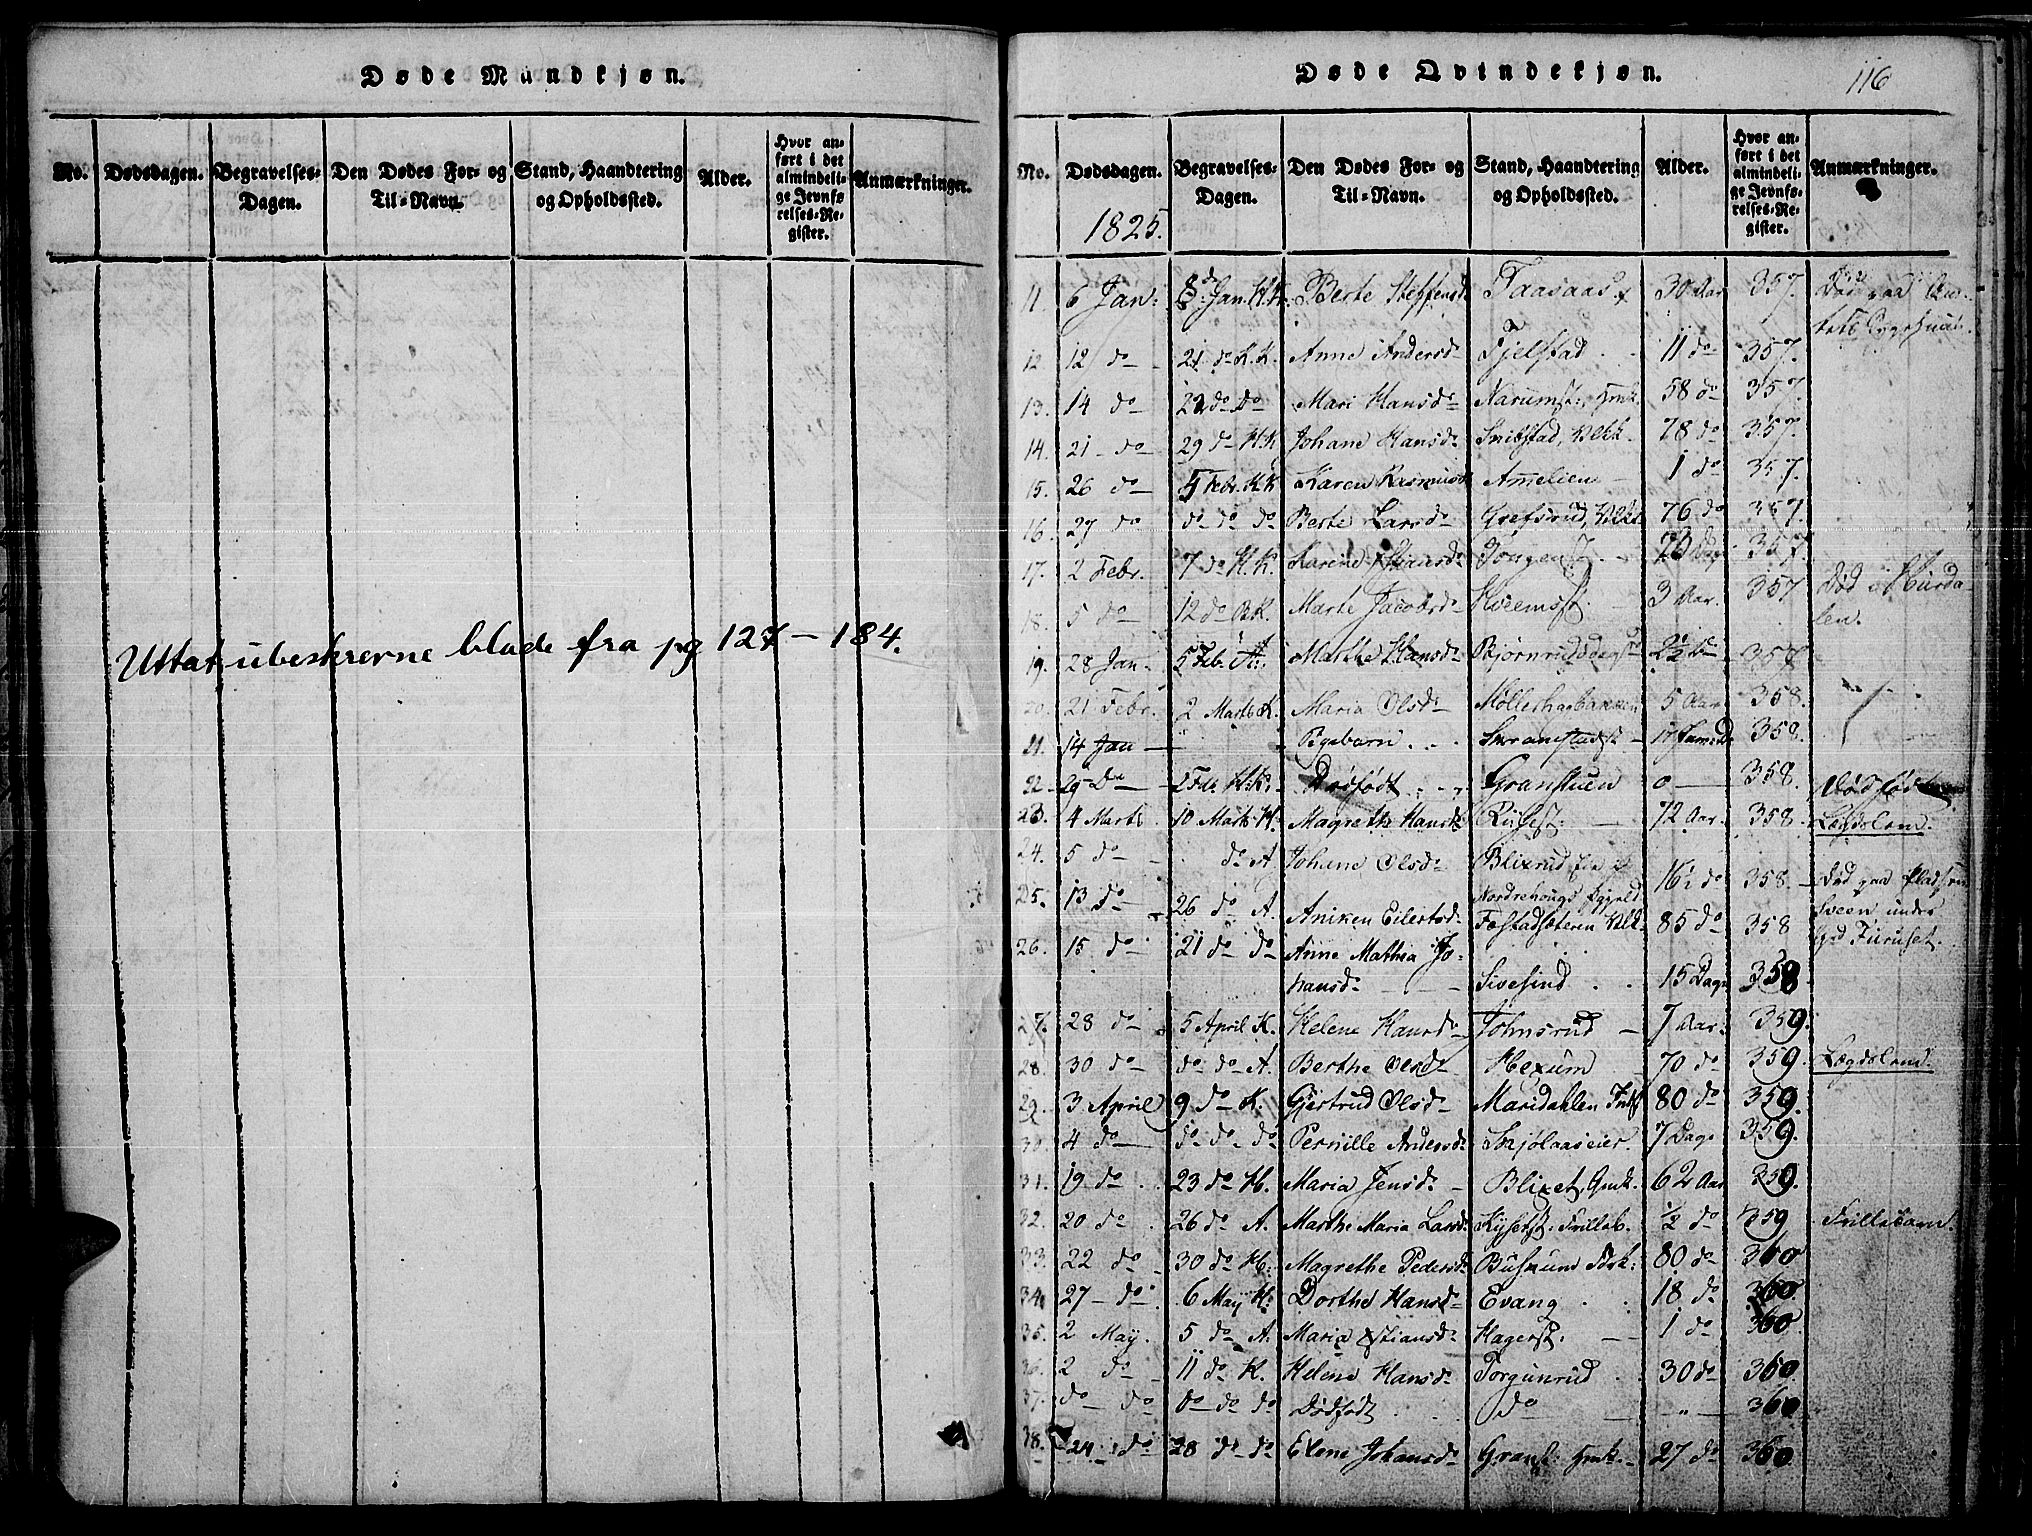 Døde Mandkjøn.
No. Dødsdagen. Begravelses-Dagen. Den Dødes For- og Til-Navn. Stand, Haandtering og Opholdssted. Alder. Hvor anført i det almindelige Jevnførelses-Register. Anmærkninger.
Uttat ubeskrevne blade fra pg 127 - 184.
Døde Qvindekjøn. 116
No. Dødsdagen. Begravelses-Dagen. Den Dødes For- og Til-Navn. Stand, Haandtering og Opholdssted. Alder. Hvor anført i det almindelige Jevnførelses-Register. Anmærkninger.
1825.
11. 6 Jan: 8 Jan. H.K. Berte Steffensd 30 Aar 357. Død paa
12 12 do 21 do K.K. Anne Andersd Fjelstad 11 do 357.
13. 14 do 22 do do Mari Hansd 58 do 357.
14. 21 do 29 do H.K Johane Hansd 78 do 357.
15. 26 do 5 Febr. K.K Karen Rasmusd Amelien 1 do 357.
16. 27 do do do do Berte Larsd Grefsrud, 76 do 357.
17. 2 Febr. 7 do H.K. Karine 357.
18. 5 do 12 do B.K. Marte Jacobsd 3 Aar. 357 Død i Hurdalen.
19. 28 Jan 5 Feb. A: Marthe Hansd 2½ do 357
20. 21 Febr. 2 Marts K. Maria Olsd 5 Aar. 358.
21. 14 Jan Pgebarn 358.
22 29 Do 2 Feb. H.K. Dødfødt Granstuen 0 358. Dødfød
23. 4 Marts 10 Marts H. Magrethe Hansd 72 Aar. 358. Lægdslem.
24. 5 do do A Johane Olsd Blixrud 16½ do 358 Død paa Pladsen
25. 13 do 26 do A. Aniken Eilertsd 85 do 358 Sveen under
26. 15 do 21 do do Anne Mathea Jo- Furuset.
hansd Sivesind 15 Dage 358
27. 28 do 5 April K. Helene Hansd Johnsrud 7 Aar. 359.
28. 30 do do do A. Berthe Olsd Hexum 70 do 359. Lægdslem.
29. 3 April 9 do K. Gjertrud Olsd Maridahlen 80 do 359.
30. 4 do do do do Pernille Andersd Skjølaaseier 7 Dage 359.
31. 19 do 23 do H. Maria Jensd Blixet, Gmk. 62 Aar 359.
32. 20 do 26 do A. Marthe Maria Larsd ½ do 359 Frillebarn.
33. 22 do 30 do H: Magrethe Pedersd 80 do 360
34. 27 do 6 May H: Dorthe Hansd Evang 18 do 360
35. 2 May. 5 do A. Maria Xstiansd Hagerst: 1 do 360
36. 2 do 11 do K. Helene Hansd Torgunrud 30 do 360
37. do do do do do Dødfødt do " 360
38. 24 do 28 do do Elene Johansd Granst: Gmk. 27 do 360